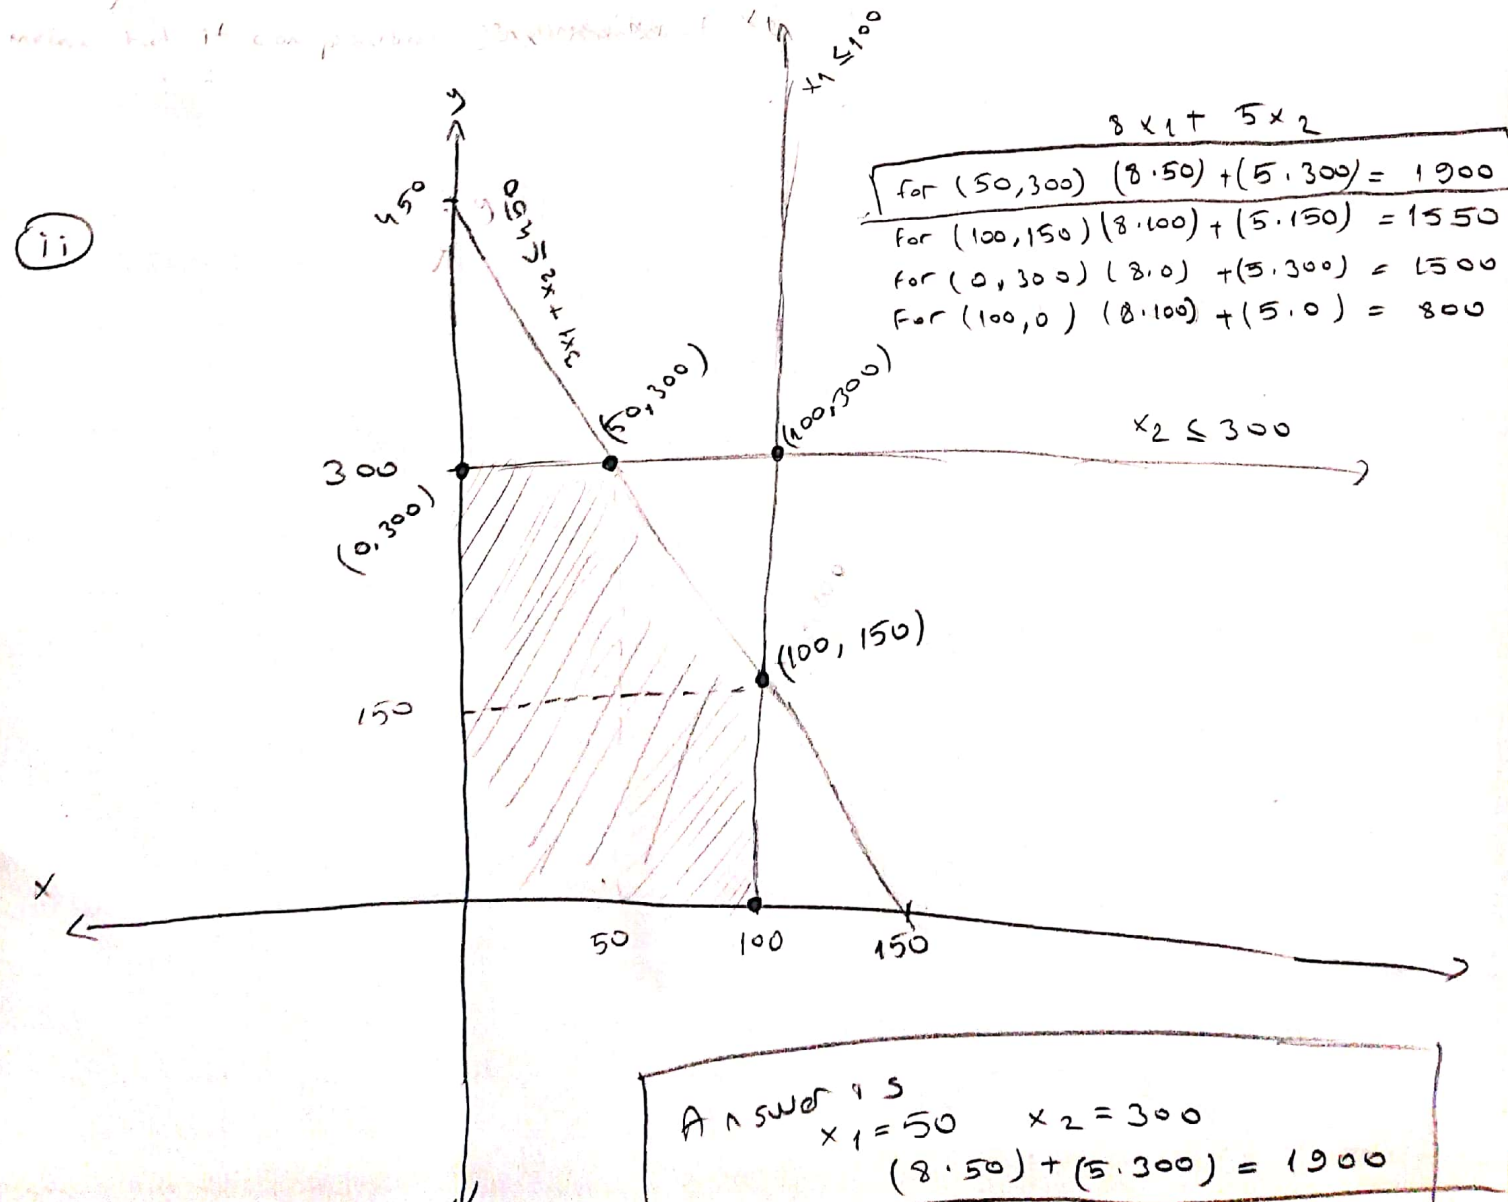 x1 ≤ 100
8x1 + 5x2
for (50,300) (8.50) + (5.300) = 1900
for (100,150) (8.100) + (5.150) = 1550
for (0,300) (8.0) + (5.300) = 1500
For (100,0) (8.100) + (5.0) = 800
y
450
3x1 + x2 ≤ 450
ii
(50,300)
(100,300)
x2 ≤ 300
300
(0,300)
(100, 150)
150
x
50 100 150
Answer is
x1 = 50 x2 = 300
(8.50) + (5.300) = 1900